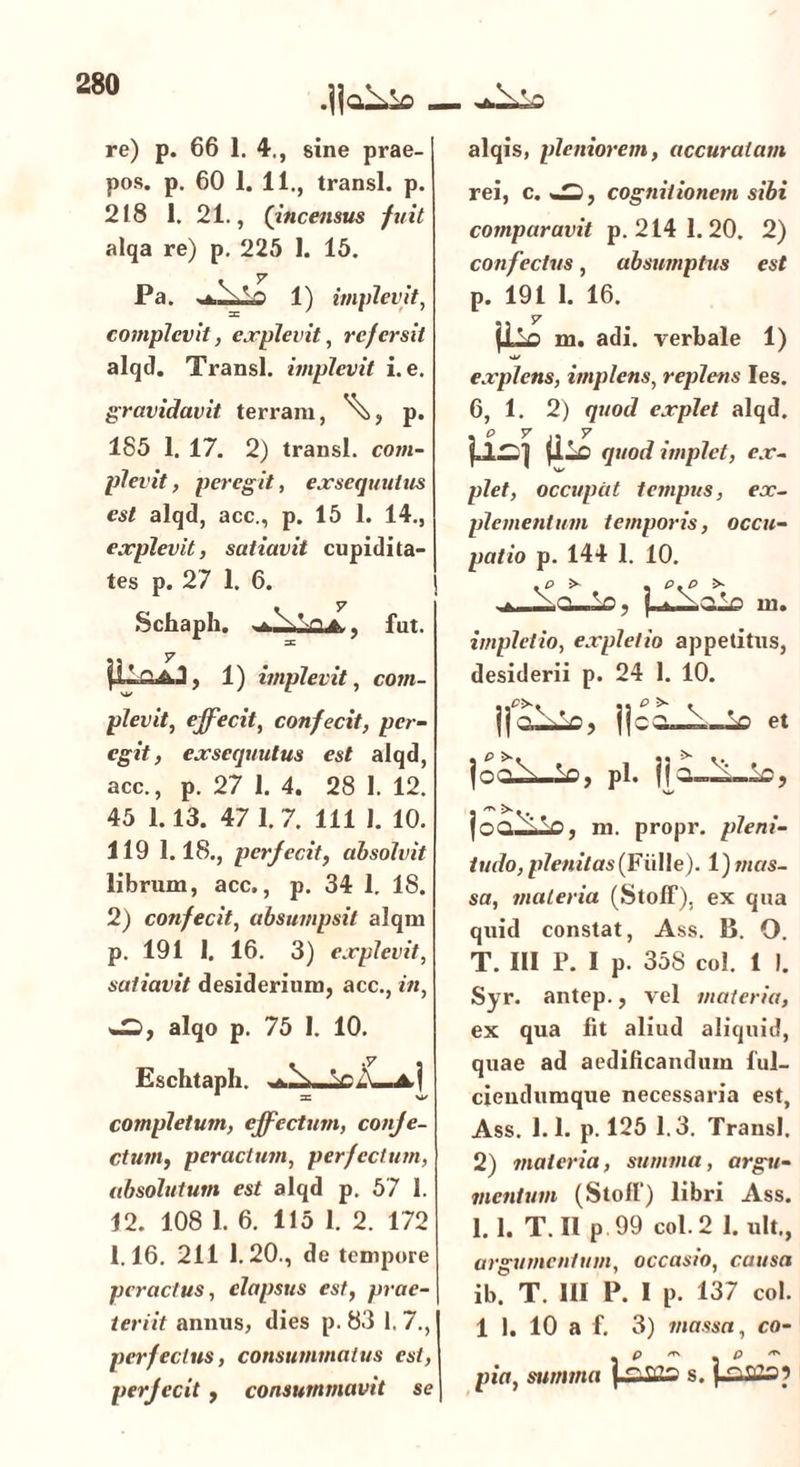 280
ܡܠܝ — ܡܠܘܐܐ.
re) p. 66 l. 4., sine prae-
pos. p. 60 l. 11., transl. p.
218 l. 21., (incensus fuit
alqa re) p. 225 l. 15.
Pa. ܡܰܠܝ 1) implevit,
complevit, explevit, refersit
alqd. Transl. implevit i. e.
gravidavit terram, ܠ, p.
185 l. 17. 2) transl. com-
plevit, peregit, exsequutus
est alqd, acc., p. 15 l. 14.,
explevit, satiavit cupidita-
tes p. 27 l. 6.
Schaph. ܫܰܘܡܠܝ, fut.
ܢܫܰܘܡܠܐ, 1) implevit, com-
plevit, effecit, confecit, per-
egit, exsequutus est alqd,
acc., p. 27 l. 4. 28 l. 12.
45 l. 13. 47 l. 7. 111 l. 10.
119 l. 18., perfecit, absolvit
librum, acc., p. 34 l. 18.
2) confecit, absumpsit alqm
p. 191 l. 16. 3) explevit,
satiavit desiderium, acc., in,
ܒ, alqo p. 75 l. 10.
Eschtaph. ܐܫܬܰܡܠܝ
completum, effectum, confe-
ctum, peractum, perfectum,
absolutum est alqd p. 57 l.
12. 108 l. 6. 115 l. 2. 172
l. 16. 211 l. 20., de tempore
peractus, elapsus est, prae-
teriit annus, dies p. 83 l. 7.,
perfectus, consummatus est,
perfecit, consummavit se
alqis, pleniorem, accuratam
rei, c. ܒ, cognitionem sibi
comparavit p. 214 l. 20. 2)
confectus, absumptus est
p. 191 l. 16.
ܡܰܠܐ m. adi. verbale 1)
explens, implens, replens Ies.
6, 1. 2) quod explet alqd.
ܡܰܠܐ ܙܰܒܢܳܐ quod implet, ex-
plet, occupat tempus, ex-
plementum temporis, occu-
patio p. 144 l. 10.
ܡܘܠܳܝ, ܡܘܠܳܝܳܐ m.
impletio, expletio appetitus,
desiderii p. 24 l. 10.
ܡܠܘܐܐ, ܡܠܘܘܐܐ et
ܡܠܘܘܐ, pl. ܡܠܘܐܐ,
ܡܠܘܘܐ, m. propr. pleni-
tudo, plenitas (Fülle). 1) mas-
sa, materia (Stoff), ex qua
quid constat, Ass. B. O.
T. III P. I p. 358 col. 1 l.
Syr. antep., vel materia,
ex qua fit aliud aliquid,
quae ad aedificandum ful-
ciendumque necessaria est,
Ass. l. l. p. 125 l. 3. Transl.
2) materia, summa, argu-
mentum (Stoff) libri Ass.
l. l. T. II p. 99 col. 2 l. ult.,
argumentum, occasio, causa
ib. T. III P. I p. 137 col.
1 l. 10 a f. 3) massa, co-
pia, summa ܟܣܦܐ s. ܕܟܣܦܐ